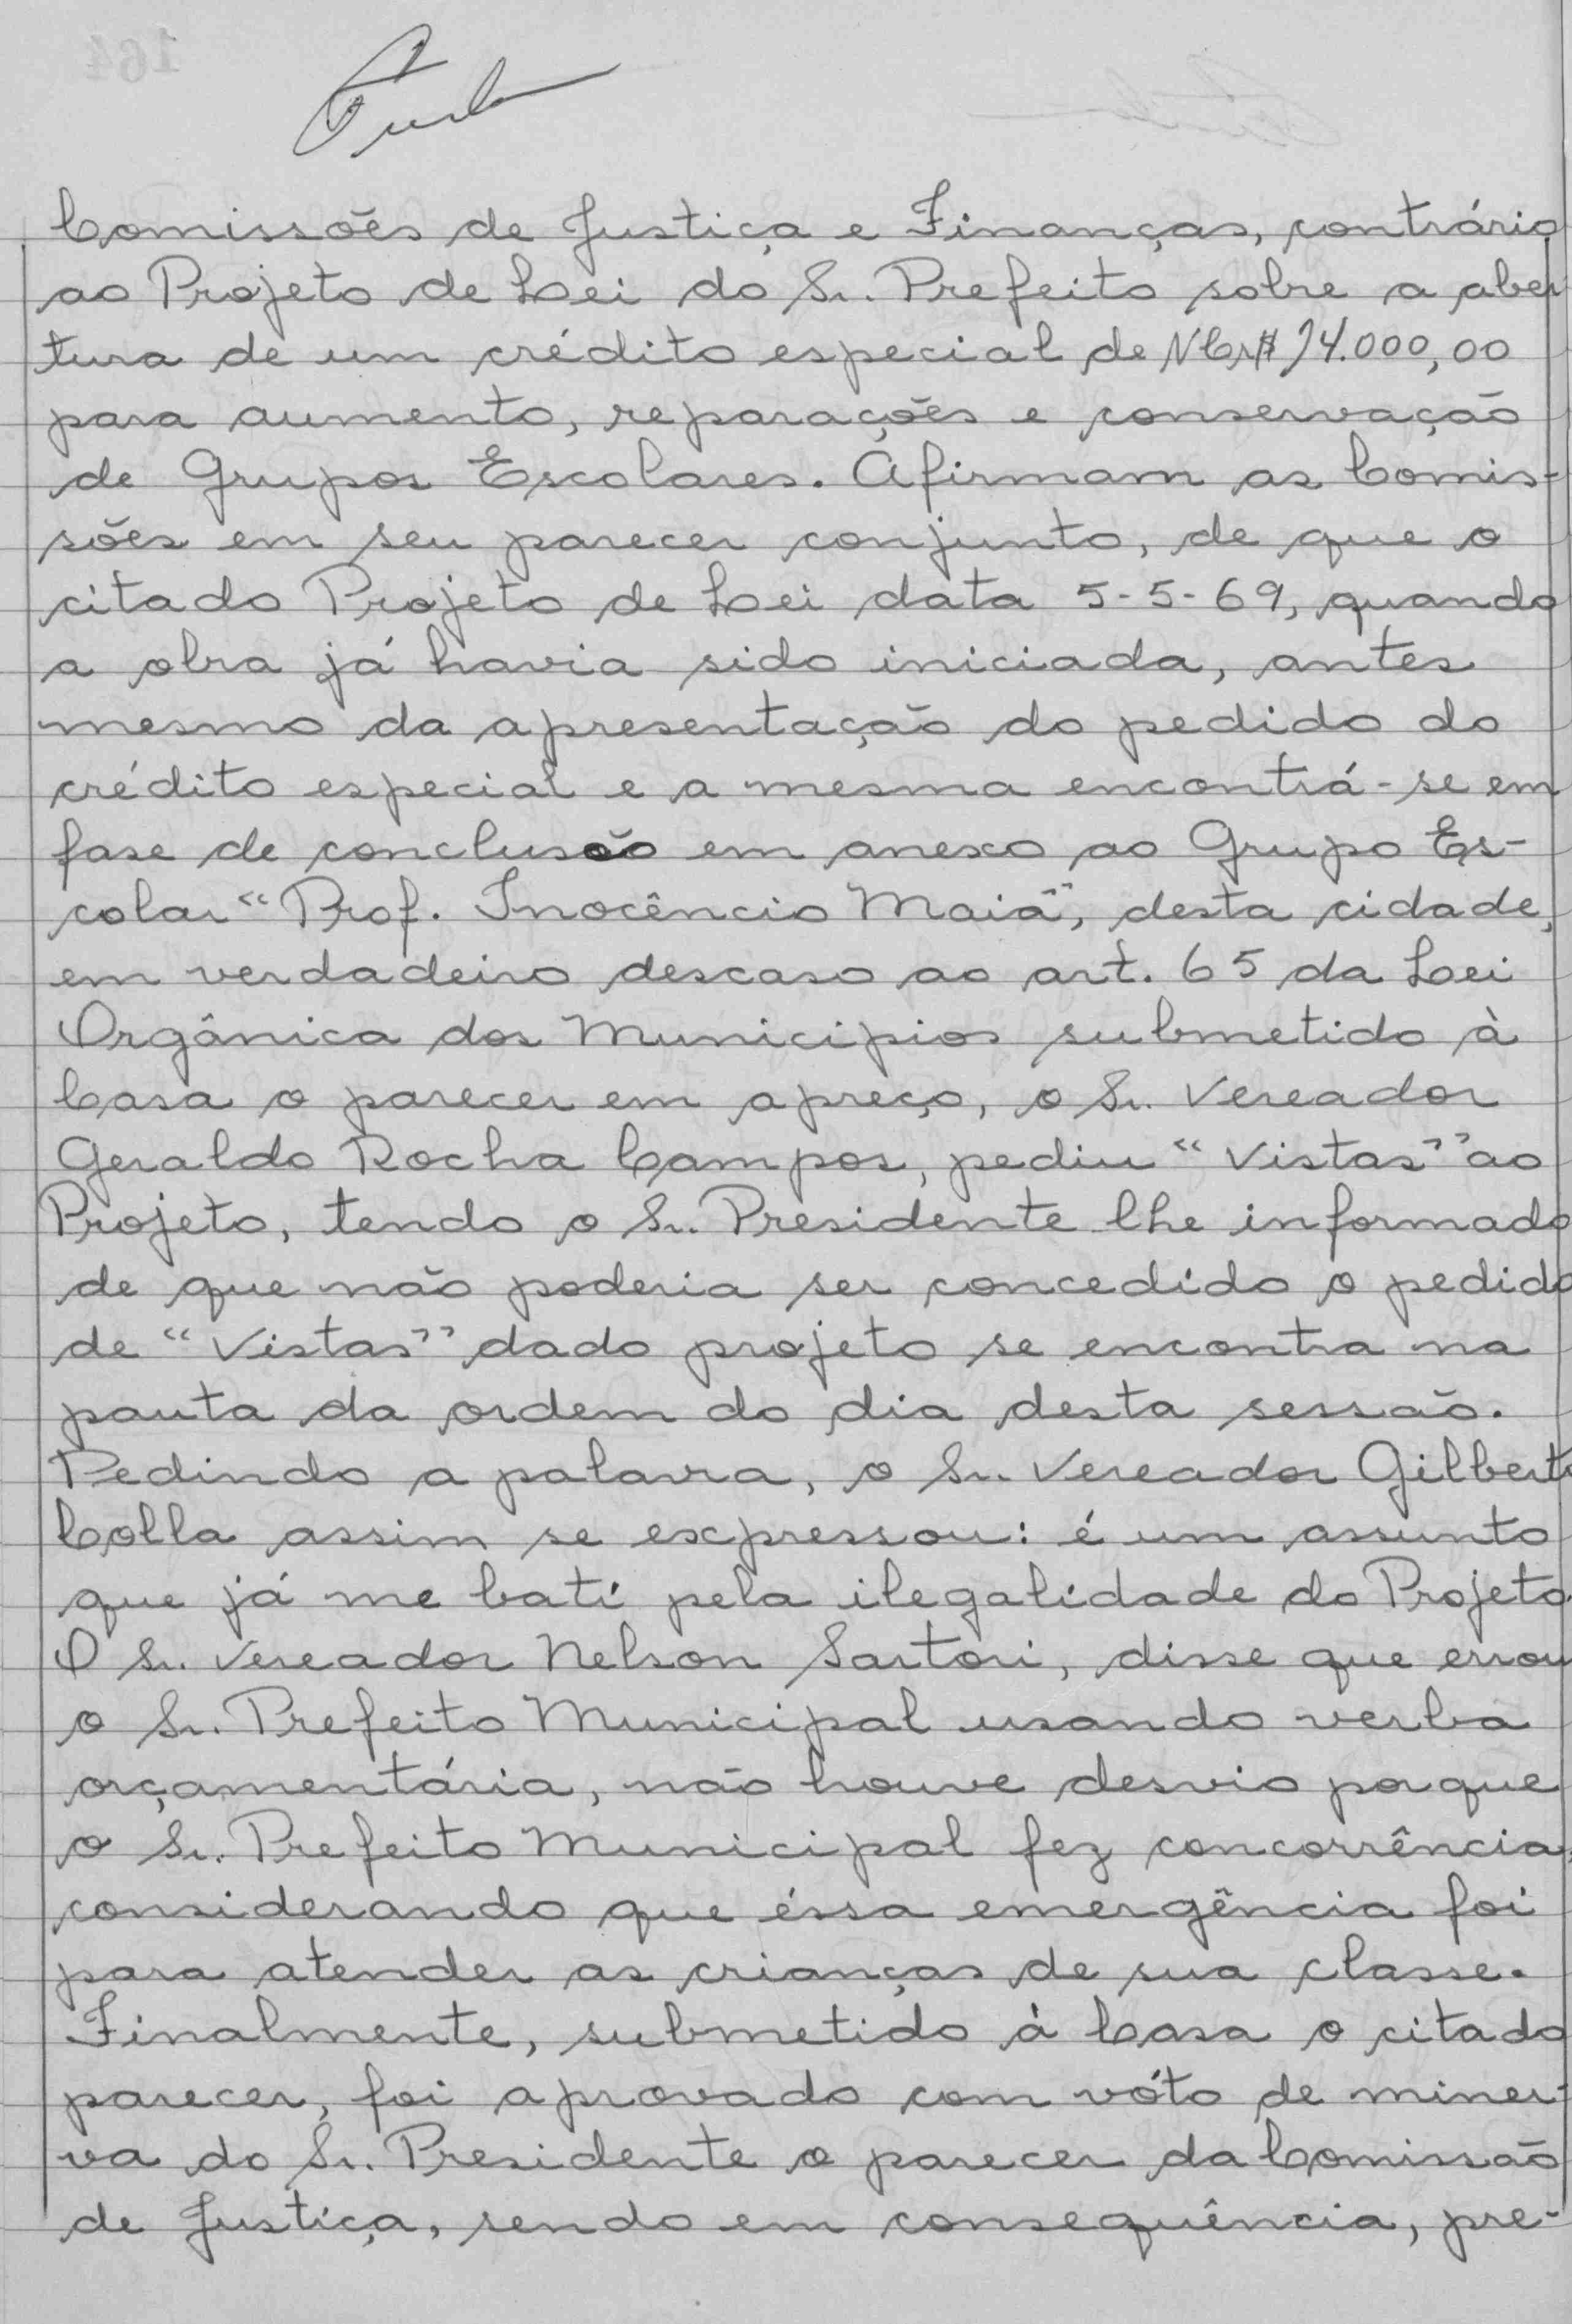 Comissões de Justiça e Finanças, contrário
ao Projeto de Lei do Sr. Prefeito sobre a aber
tura de um crédito especial de NCr$ 14.000,00
para aumento, reparações e conservação
de Grupos Escolares. Afirmam as Comis-
sões em seu parecer conjunto, de que o
citado Projeto de Lei data 5-5-69, quando
a obra já havia sido iniciada, antes
mesmo da apresentação do pedido do
crédito especial e a mesma encontrá-se em
fase de conclusão em anexo ao Grupo Es-
colar "Prof. Inocêncio Maia", desta cidade,
em verdadeiro descaso ao art. 65 da Lei
Orgânica dos Municipios submetido à
Casa o parecer em apreço, o Sr. Vereador
Geraldo Rocha Campos, pediu "Vistas" ao
Projeto, tendo o Sr. Presidente lhe informado
de que não poderia ser concedido o pedido
de "Vistas" dado projeto se encontra na
pauta da ordem do dia desta sessão.
Pedindo a palavra, o Sr. Vereador Gilberto
Colla assim se expressou: é um assunto
que já me batí pela ilegalidade do Projeto.
O Sr. Vereador Nelson Sartori, disse que errou
o Sr. Prefeito Municipal usando verba
orçamentária, não houve desvio porque
o Sr. Prefeito Municipal fez concorrência,
considerando que éssa emergência foi
para atender as crianças de sua classe.
Finalmente, submetido à Casa o citado
parecer, foi aprovado com vóto de miner-
va do Sr. Presidente o parecer da Comissão
de Justiça, sendo em consequência, pre-